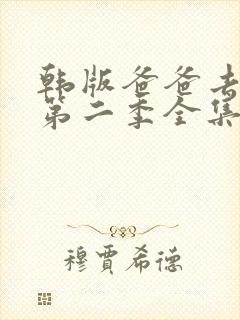 韩版爸爸去
第二季全集
穆贾希德